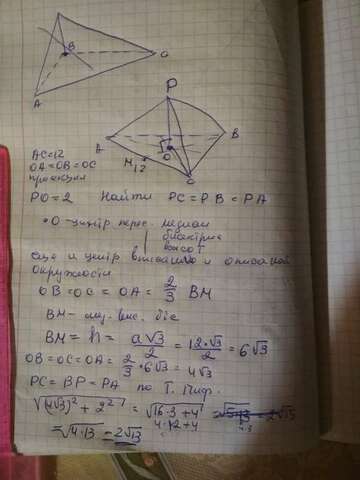 B
A
C
P
A
B
M 12
O
C
AC=12
OA=OB=OC
проекция
PO=2 Найти PC=PB=PA
•O-центр перес. медиан
биссектрис
высот
еще и центр вписанной и описанной
окружности
OB=OC=OA= 2/3 BM
BM- мед. выс. бис
BM=h= a√3/2 = 12·√3/2 = 6√3
OB=OC=OA= 2/3·6√3=4√3
PC=BP=PA по т. Пиф.
√(4√3)²+2² = √16·3+4 = √5·13 = 2√13
4·12+4 4·3
=√4·13 = 2√13